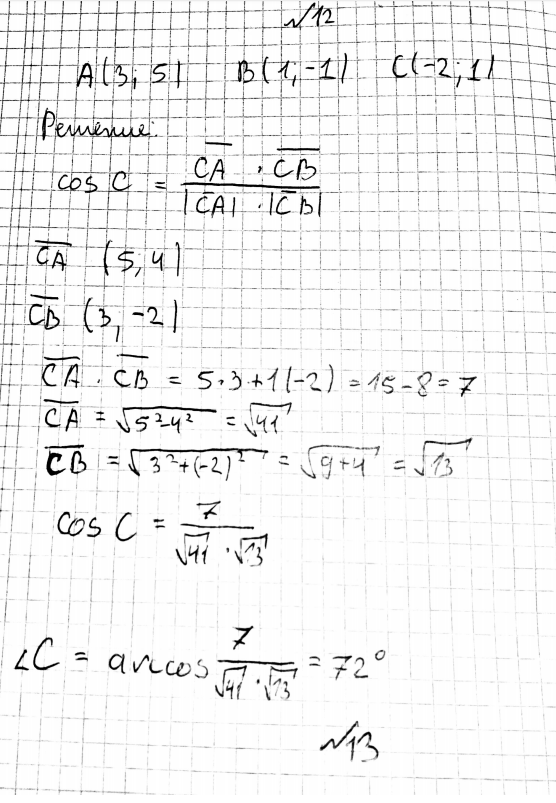 №12
A(3; 5) B(1; -1) C(-2; 1)
Решение:
cos C = (CA · CB) / (|CA| · |CB|)
CA (5, 4)
CB (3, -2)
CA · CB = 5·3+1(-2) = 15-8 = 7
CA = √5²-4² = √41
CB = √3²+(-2)² = √9+4 = √13
cos C = 7 / (√41 · √13)
∠C = arccos 7 / (√41 · √13) = 72°
№13